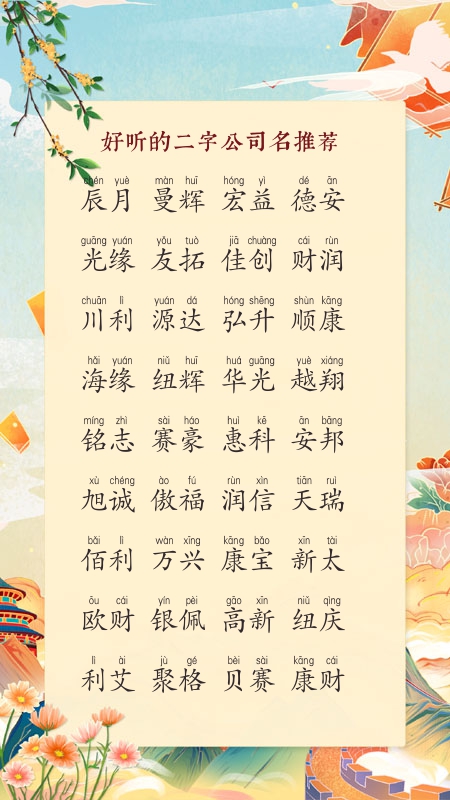 好听的二字公司名推荐
chén yuè màn huī hóng yì dé ān
辰月 曼辉 宏益 德安
guāng yuán yǒu tuò jiā chuàng cái rùn
光缘 友拓 佳创 财润
chuān lì yuán dá hóng shēng shùn kāng
川利 源达 弘升 顺康
hǎi yuán niǔ huī huá guāng yuè xiáng
海缘 纽辉 华光 越翔
míng zhì sài háo huì kē ān bāng
铭志 赛豪 惠科 安邦
xù chéng ào fú rùn xìn tiān ruì
旭诚 傲福 润信 天瑞
bǎi lì wàn xīng kāng bǎo xīn tài
佰利 万兴 康宝 新太
ōu cái yín pèi gāo xīn niǔ qìng
欧财 银佩 高新 纽庆
lì ài jù gé bèi sài kāng cái
利艾 聚格 贝赛 康财